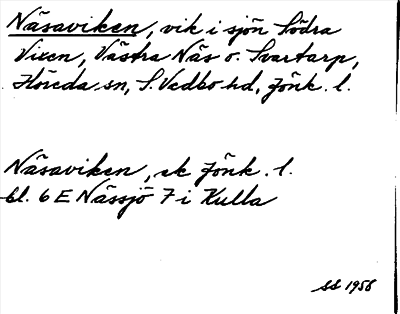 Näsaviken, vik i sjön Södra
Vixen, Västra Näs o. Svartarp,
Flöreda sn, S. Vedbo hd, Jönk. l.
Näsaviken, ek Jönk. l.
bl. 6 E Nässjö 7 i Kulla
SS 1956